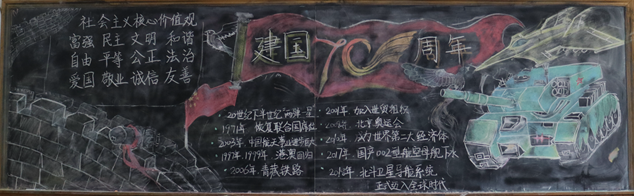 社会主义核心价值观
富强 民主 文明 和谐
自由 平等 公正 法治
爱国 敬业 诚信 友善
建国70周年
· 20世纪下半世纪"两弹一星
· 1971年 恢复联合国席位
· 2003年 中国航天
· 1997年.1999年 港澳回归
· 2006年 青藏铁路
· 2001年 加入世贸组织
· 2008年 北京奥运会
· 2010年 成为世界第二大经济体
· 2017年 国产002型航空母舰下水
· 2018年 北斗卫星导航系统
正式迈入全球时代